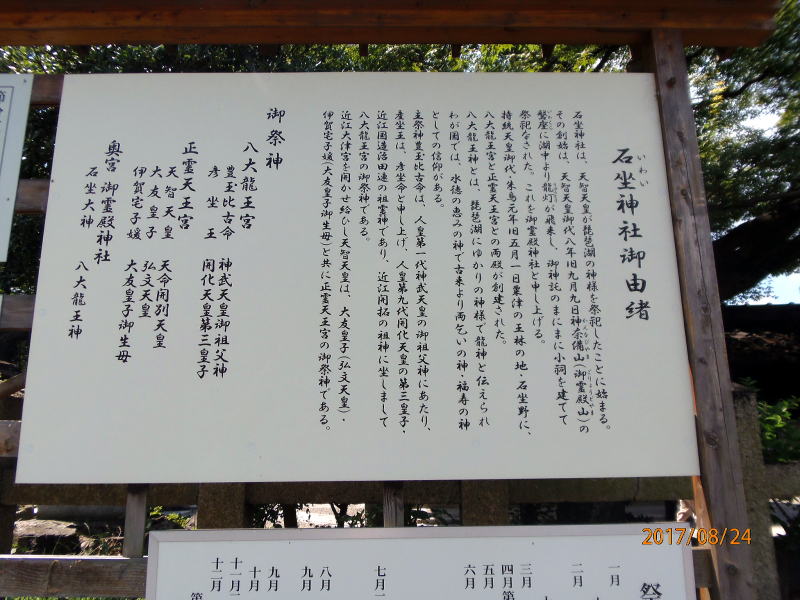 石坐神社御由緒
いわい
石坐神社は、天智天皇が琵琶湖の神様を祭祀したことに始まる。
その創始は、天智天皇御代八年旧九月九日神奈備山(御霊殿山)の
磐座に湖中より龍灯が飛来し、御神託のまにまに小祠を建てて
祭祀なされた。これを御霊殿神社と申し上げる。
持統天皇御代、朱鳥元年旧五月一日粟津の王林の地・石坐野に、
八大龍王宮と正霊天王宮との両殿が創建された。
八大龍王神とは、琵琶湖にゆかりの神様で龍神と伝えられ
わが国では、水徳の恵みの神で古来より雨乞いの神・福寿の神
としての信仰がある。
主祭神豊玉比古命は、人皇第一代神武天皇の御祖父神にあたり、
彦坐王は、彦坐命と申し上げ、人皇第九代開化天皇の第三皇子・
近江国造治田連の祖霊神であり、近江開拓の祖神に坐しまして
八大龍王宮の御祭神である。
近江大津宮を開かせ給ひし天智天皇は、大友皇子(弘文天皇)・
伊賀宅子媛(大友皇子御生母)と共に正霊天王宮の御祭神である。
御祭神
八大龍王宮
豊玉比古命 神武天皇御祖父神
彦坐王 開化天皇第三皇子
正霊天王宮
天智天皇 天命開別天皇
大友皇子 弘文天皇
伊賀宅子媛 大友皇子御生母
奥宮 御霊殿神社
石坐大神 八大龍王神
祭
一月
二月
三月
四月第
五月
六月
七月一
八月
九月
九月
十月
十一月
十二月
第
2017/08/24